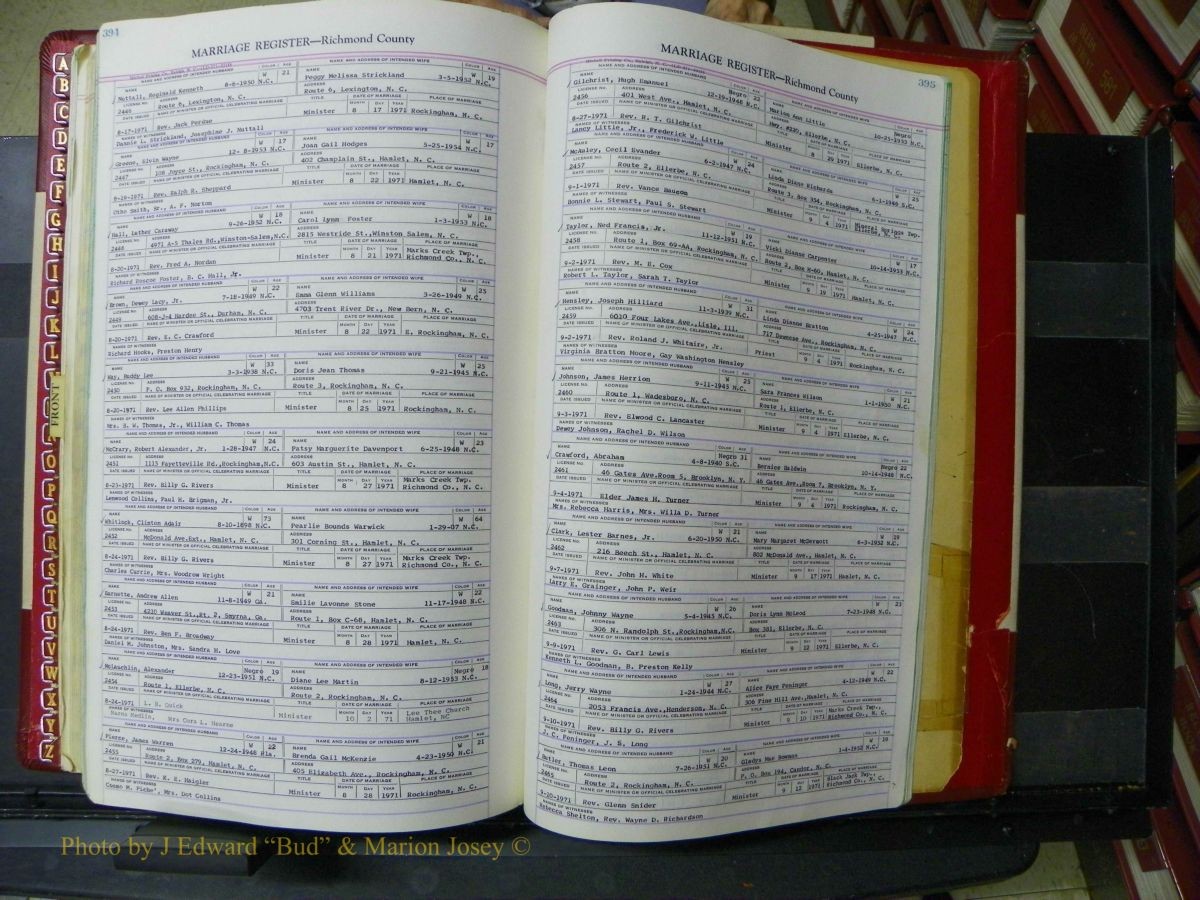 394
MARRIAGE REGISTER—Richmond County
NAME AND ADDRESS OF INTENDED HUSBAND COLOR AGE NAME AND ADDRESS OF INTENDED WIFE COLOR AGE
Nuttall, Reginald Kenneth 8-8-1950 N.C. W 21 Peggy Melissa Strickland 3-5-1952 W 19
2446 Route 6, Lexington, N. C. Route 6, Lexington, N. C.
8-17-1971 Rev. Jack Perdue Minister 8 17 1971 Rockingham, N. C.
Dannie L. Strickland, Josephine J. Nuttall
Greene, Elvin Wayne 12- 8-1953 N.C. W 17 Joan Gail Hodges 5-25-1954 N.C. W 17
2447 108 Joyce St., Rockingham, N. C. 402 Champlain St., Hamlet, N. C.
Rev. Ralph R. Sheppard Minister 8 22 1971 Hamlet, N. C.
Otho Smith, Sr., A. F. Norton
Hall, Luther Caraway 9-26-1952 N.C. W 18 Carol Lynn Foster 1-3-1953 N.C. W 18
2448 4971 A-5 Thales Rd.,Winston-Salem,N.C. 2815 Westride St.,Winston Salem, N. C.
8-20-1971 Rev. Fred A. Hordan Minister 8 21 1971 Marks Creek Twp., Richmond Co., N. C.
Richard Roscoe Foster, B. C. Hall, Jr.
Brown, Dewey Lacy, Jr. 7-18-1949 N.C. W 22 Emma Glenn Williams 3-26-1949 N.C. W 25
2449 608-J-4 Hardee St., Durham, N. C. 4703 Trent River Dr., New Bern, N. C.
8-20-1971 Rev. E. C. Crawford Minister 8 22 1971 E. Rockingham, N. C.
Richard Hooks, Preston Henry
Way, Buddy Lee 3-3-1938 N.C. W 33 Doris Jean Thomas 9-21-1945 N.C. W 25
2450 P. O. Box 932, Rockingham, N. C. Route 3, Rockingham, N. C.
8-20-1971 Rev. Lee Allen Phillips Minister 8 25 1971 Rockingham, N. C.
Mrs. B. W. Thomas, Jr., William C. Thomas
McCrary, Robert Alexander, Jr. 1-28-1947 N.C. W 24 Patsy Marguerite Davenport 6-25-1948 N.C. W 23
2451 1115 Fayetteville Rd.,Rockingham,N.C. 603 Austin St., Hamlet, N. C.
8-23-1971 Rev. Billy G. Rivers Minister 8 27 1971 Marks Creek Twp. Richmond Co., N. C.
Lenwood Collins, Paul H. Brigman, Jr.
Whitlock, Clinton Adair 8-10-1898 N.C. W 73 Pearlie Bounds Warwick 1-29-07 N.C. W 64
2452 McDonald Ave.Ext., Hamlet, N. C. 301 Corning St., Hamlet, N. C.
8-24-1971 Rev. Billy G. Rivers Minister 8 27 1971 Marks Creek Twp. Richmond Co., N. C.
Charles Currie, Mrs. Woodrow Wright
Garnette, Andrew Allen 11-8-1949 Ga. W 21 Emilie Lavonne Stone 11-17-1948 N.C. W 22
2453 4210 Weaver St.,Rt. 2, Smyrna, Ga. Route 1, Box C-68, Hamlet, N. C.
8-24-1971 Rev. Ben F. Broadway Minister 8 28 1971 Hamlet, N. C.
Daniel M. Johnston, Mrs. Sandra H. Love
McLauchlin, Alexander 12-23-1951 N.C. Negro 19 Diane Lee Martin 8-12-1953 N.C. Negro 18
2454 Route 1, Ellerbe, N. C. Route 2, Rockingham, N. C.
8-24-1971 L. B. Quick Minister 10 2 71 Lee Thee Church Hamlet, NC
Mrs Cora L. Hearne
Pierre, James Warren 12-24-1948 Fla. W 22 Brenda Gail McKenzie 4-23-1950 N.C. W 21
2455 Route 2, Box 279, Hamlet, N. C. 405 Elizabeth Ave., Rockingham, N. C.
8-27-1971 Rev. R. E. Haigler Minister 8 28 1971 Rockingham, N. C.
Cosmo M. Piche', Mrs. Dot Collins
395
MARRIAGE REGISTER—Richmond County
Gilchrist, Hugh Emanuel 12-19-1948 N.C. Negro 22 Marion Ann Little 10-23-1953 N.C. Negro
2456 401 West Ave., Hamlet, N. C. Hwy. #220, Ellerbe, N. C.
8-27-1971 Rev. R. T. Gilchrist Minister 8 29 1971 Ellerbe, N. C.
Lancy Little, Jr., Frederick W. Little
McAuley, Cecil Evander 6-2-1947 N.C. W 24 Linda Diane Richards 6-1-1946 W 25
2457 Route 2, Ellerbe, N. C. Route 3, Box 354, Rockingham, N. C.
9-1-1971 Rev. Vance Baucom Minister 9 1971 Mineral Springs Twp.
Bonnie L. Stewart, Paul S. Stewart
Taylor, Ned Francis, Jr. 11-12-1951 N.C. W 19 Vicki Dianne Carpenter 10-14-1953 N.C. W 17
2458 Route 1, Box 69-AA, Rockingham, N. C. Route 2, Box H-60, Hamlet, N. C.
9-2-1971 Rev. M. E. Cox Minister 9 19 1971 Hamlet, N. C.
Robert L. Taylor, Sarah T. Taylor
Hensley, Joseph Hilliard 11-3-1939 N.C. W 31 Linda Dianne Bratton 4-25-1947 N.C. W 24
2459 6010 Four Lakes Ave.,Lisle, Ill. 717 Dewmese Ave., Rockingham, N. C.
9-2-1971 Rev. Roland J. Whitaire, Jr. Priest 9 4 1971 Rockingham, N. C.
Virginia Bratton Moore, Gay Washington Hensley
Johnson, James Herrion 9-11-1945 N.C. W 25 Sara Frances Wilson 1-1-1950 N.C. W 21
2460 Route 1, Wadesboro, N. C. Route 1, Ellerbe, N. C.
9-3-1971 Rev. Elwood C. Lancaster Minister 9 4 1971 Ellerbe, N. C.
Dewey Johnson, Rachel D. Wilson
Crawford, Abraham 4-8-1940 S.C. Negro 31 Bernice Baldwin 10-14-1948 N.C. Negro 22
2461 46 Gates Ave.Room 5, Brooklyn, N. Y. 46 Gates Ave.,Room 7, Brooklyn, N. Y.
9-4-1971 Elder James H. Turner Minister 9 4 1971 Rockingham, N. C.
Mrs. Rebecca Harris, Mrs. Willa D. Turner
Clark, Lester Barnes, Jr. 6-20-1950 N.C. W 21 Mary Margaret McDermott 4-3-1952 N.C. W 19
2462 216 Beech St., Hamlet, N. C. 802 McDonald Ave., Hamlet, N. C.
9-7-1971 Rev. John H. White Minister 9 17 1971 Hamlet, N. C.
Larry E. Grainger, John P. Weir
Goodman, Johnny Wayne 5-4-1945 N.C. W 26 Doris Lynn McLeod 7-23-1948 N.C. W 23
2463 306 N. Randolph St.,Rockingham,N.C. Box 381, Ellerbe, N. C.
9-9-1971 Rev. G. Carl Lewis Minister 9 12 1971 Ellerbe, N. C.
Kenneth L. Goodman, B. Preston Kelly
Long, Jerry Wayne 1-24-1944 N.C. W 27 Alice Faye Peninger 4-12-1949 N.C. W 22
2464 2053 Francis Ave.,Henderson, N. C. 306 Pine Hill Ave.,Hamlet, N. C.
9-10-1971 Rev. Billy G. Rivers Minister 9 10 1971 Marks Creek Twp., Richmond Co., N. C.
J. C. Peninger, J. S. Long
Butler, Thomas Leon 7-26-1951 N.C. W 20 Gladys Mae Bowman 1-4-1952 N.C. W 19
2465 Route 2, Rockingham, N. C. P. O. Box 194, Candor, N. C.
9-10-1971 Rev. Glenn Snider Minister 9 12 1971 Black Jack Twp. Richmond Co., N. C.
Rebecca Shelton, Rev. Wayne D. Richardson
A
B
C
D
E
F
G
H
I
J
K
L
FRONT
O
P
Q
R
S
T
U
V
W
X
Y
Z
Photo by J Edward “Bud” & Marion Josey ©